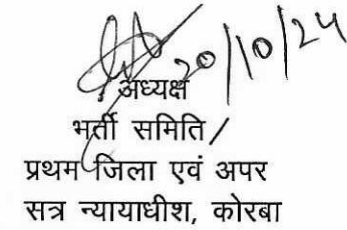 20/10/24
अध्यक्ष
भर्ती समिति /
प्रथम जिला एवं अपर
सत्र न्यायाधीश, कोरबा